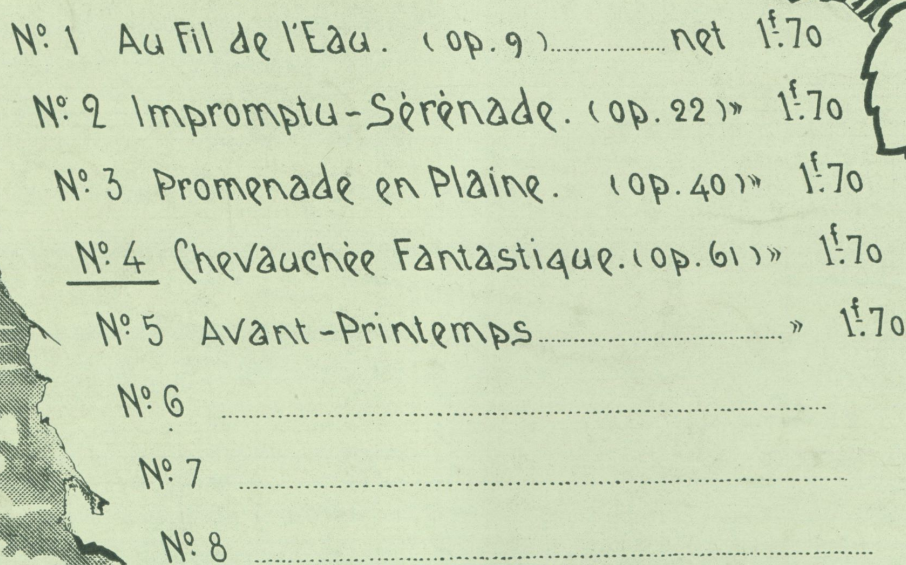 Nº 1 Au Fil de l'Eau. (op. 9)............ net 1f.70
Nº 2 Impromptu-Sérénade. (op. 22) » 1f.70
Nº 3 Promenade en Plaine. (op. 40) » 1f.70
Nº 4 Chevauchée Fantastique. (op. 61) » 1f.70
Nº 5 Avant-Printemps............................ » 1f.70
Nº 6 ............................................................
Nº 7 ............................................................
Nº 8 ............................................................